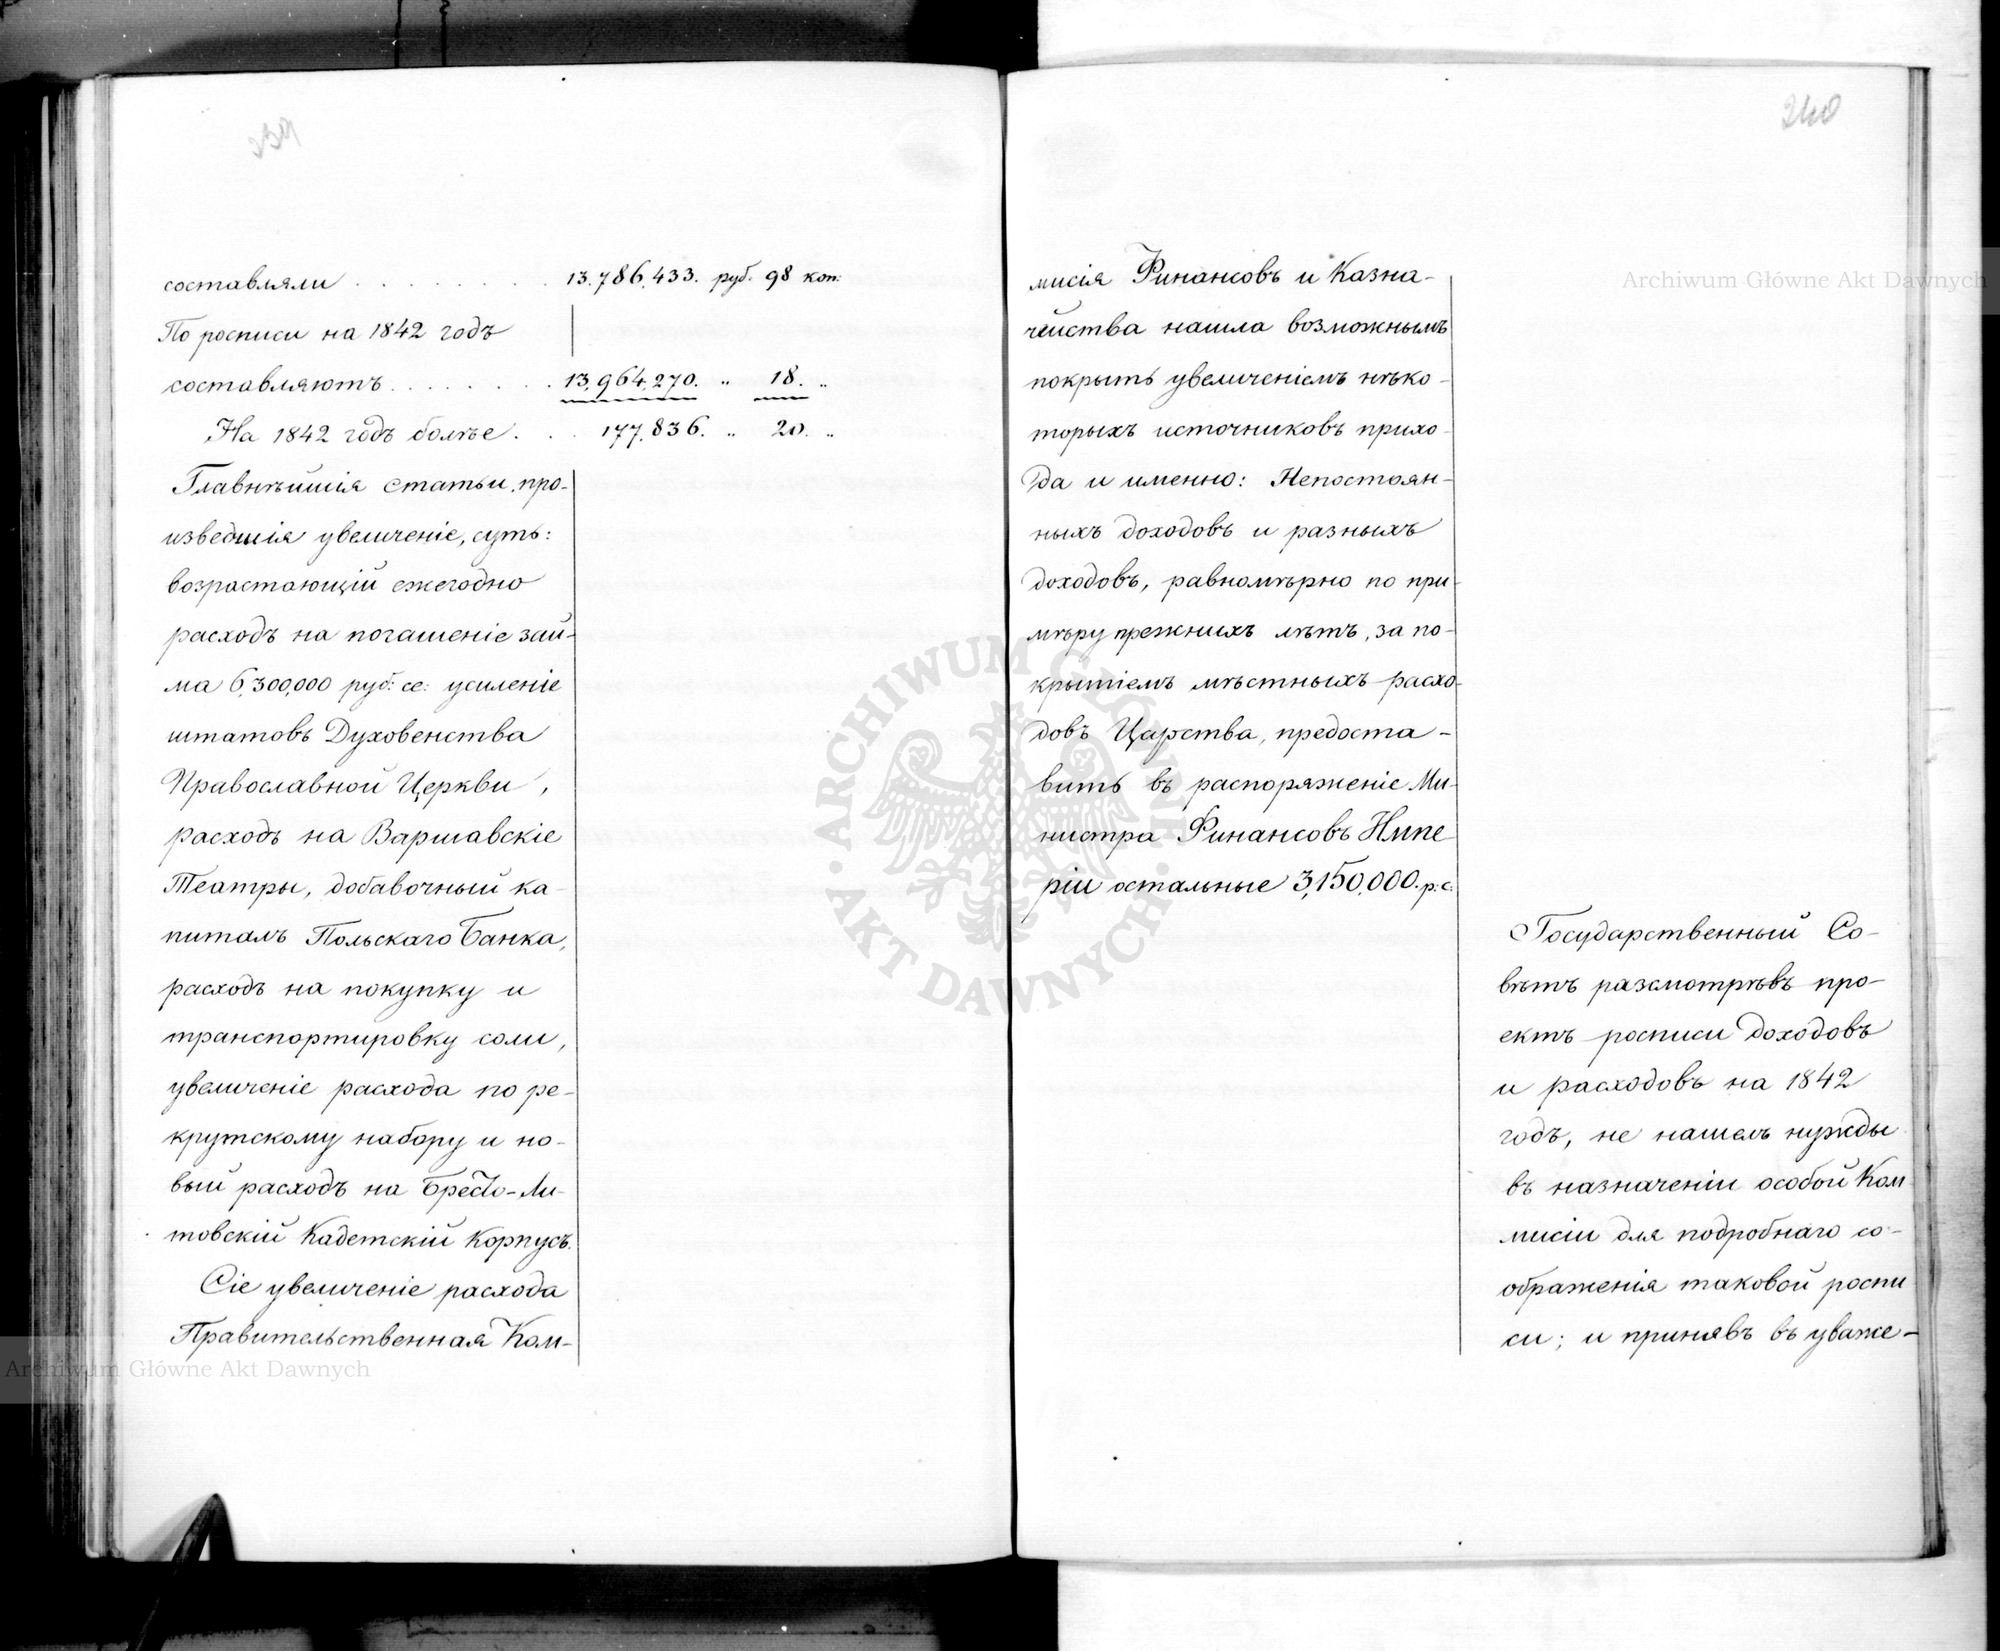 239
составляли . . . . . . . . 13.786,433. руб. 98 коп:
По росписи на 1842 годъ
составляютъ . . . . . . . 13,964,270. „ 18. „
На 1842 годъ болѣе . . . 177,836. „ 20. „
Главнѣйшія статьи, про-
изведшія увеличеніе, суть:
возрастающій ежегодно
расходъ на погашеніе зай-
ма 6,300,000 руб: се: усиленіе
штатовъ Духовенства
Православной Церкви,
расходъ на Варшавскіе
Театры, добавочный ка-
питалъ Польскаго Банка,
расходъ на покупку и
транспортировку соли,
увеличеніе расхода по ре-
крутскому набору и но-
вый расходъ на Бресто-Ли-
товскій Кадетскій Корпусъ.
Сіе увеличеніе расхода
Правительственная Ком-
240
мисія Финансовъ и Казна-
чейства нашла возможнымъ
покрыть увеличеніемъ нѣко-
торыхъ источниковъ прихо-
да и именно: Непостоян-
ныхъ доходовъ и разныхъ
доходовъ, равномѣрно по при-
мѣру прежнихъ лѣтъ, за по-
крытіемъ мѣстныхъ расхо-
довъ Царства, предоста-
вить въ распоряженіе Ми-
нистра Финансовъ Импе
ріи остальные 3,150,000. р: с:
Государственный Со-
вѣтъ разсмотрѣвъ про-
ектъ росписи доходовъ
и расходовъ на 1842
годъ, не нашелъ нужды
въ назначеніи особой Ком
мисіи для подробнаго со-
ображенія таковой роспи
си; и принявъ въ уваже-
Archiwum Główne Akt Dawnych
Archiwum Główne Akt Dawnych
· ARCHIWUM GŁÓWNE · AKT DAWNYCH ·